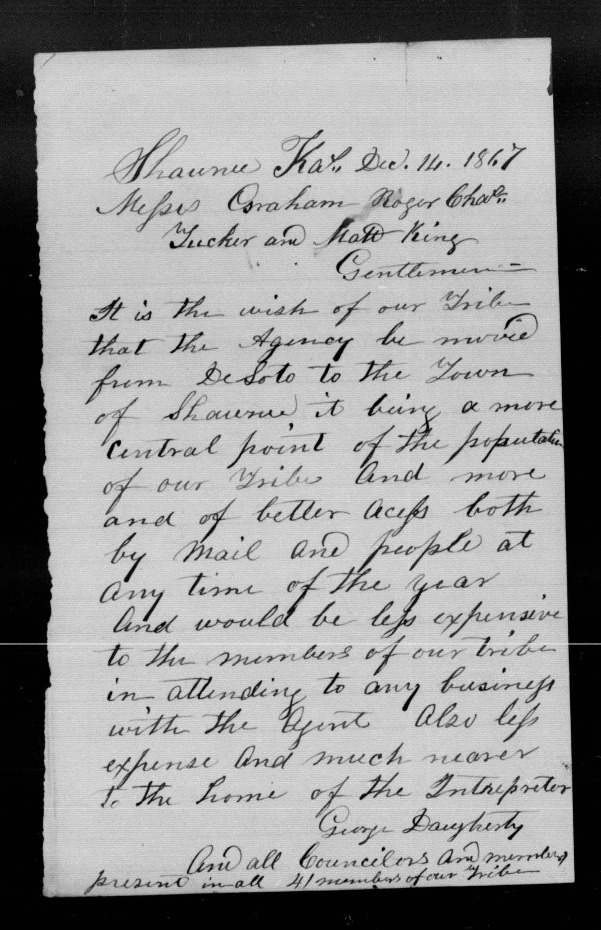 Shawnee Kas. Dec. 14. 1867
Messrs Graham Roger Chas.
Tucker and Matt King
Gentlemen =
It is the wish of our Tribe
that the Agency be moved
from DeSoto to the Town
of Shawnee it being a more
central point of the population
of our Tribe And more
and of better Acess both
by Mail and people at
any time of the year
And would be less expensive
to the members of our tribe
in attending to any business
with the Agent Also less
expense and much nearer
to the home of the Intrepreter
George Daugherty
And all Councilors and members
present in all 41 members of our Tribe